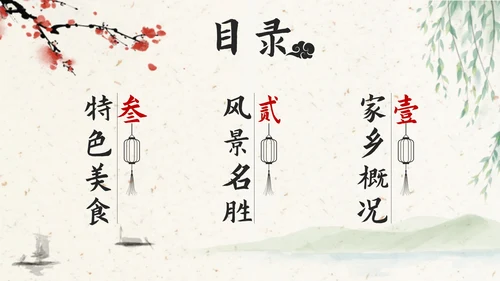 目录
壹
家乡概况
贰
风景名胜
叁
特色美食